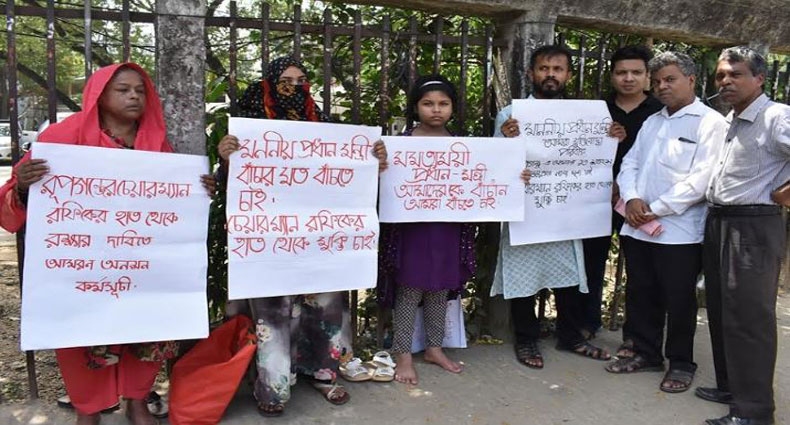 রূপগঞ্জের চেয়ারম্যান
রফিকের হাত থেকে
রক্ষার দাবিতে
আমরণ অনশন
কর্মসূচী.
মাননীয় প্রধান মন্ত্রী
বাঁচার মত বাঁচতে
চাই.
চেয়ারম্যান রফিকের
হাত থেকে মুক্তি চাই.
মমতাময়ী
প্রধান-মন্ত্রী
আমাদেরকে বাঁচান
আমরা বাঁচতে চাই.
মাননীয় প্রধান মন্ত্রী
চেয়ারম্যান রফিকের হাত থেকে
মুক্তি চাই